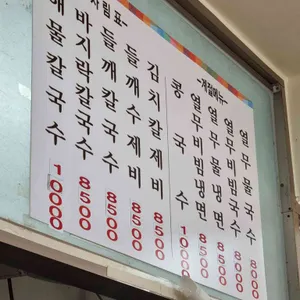 차림표
해물칼국수 10000
바지락칼국수 8500
들깨칼국수 8500
들깨수제비 8500
김치칼제비 8500
~계절메뉴~
콩국수 10000
열무비빔냉면 8500
열무물냉면 8500
열무비빔국수 8000
열무물국수 8000